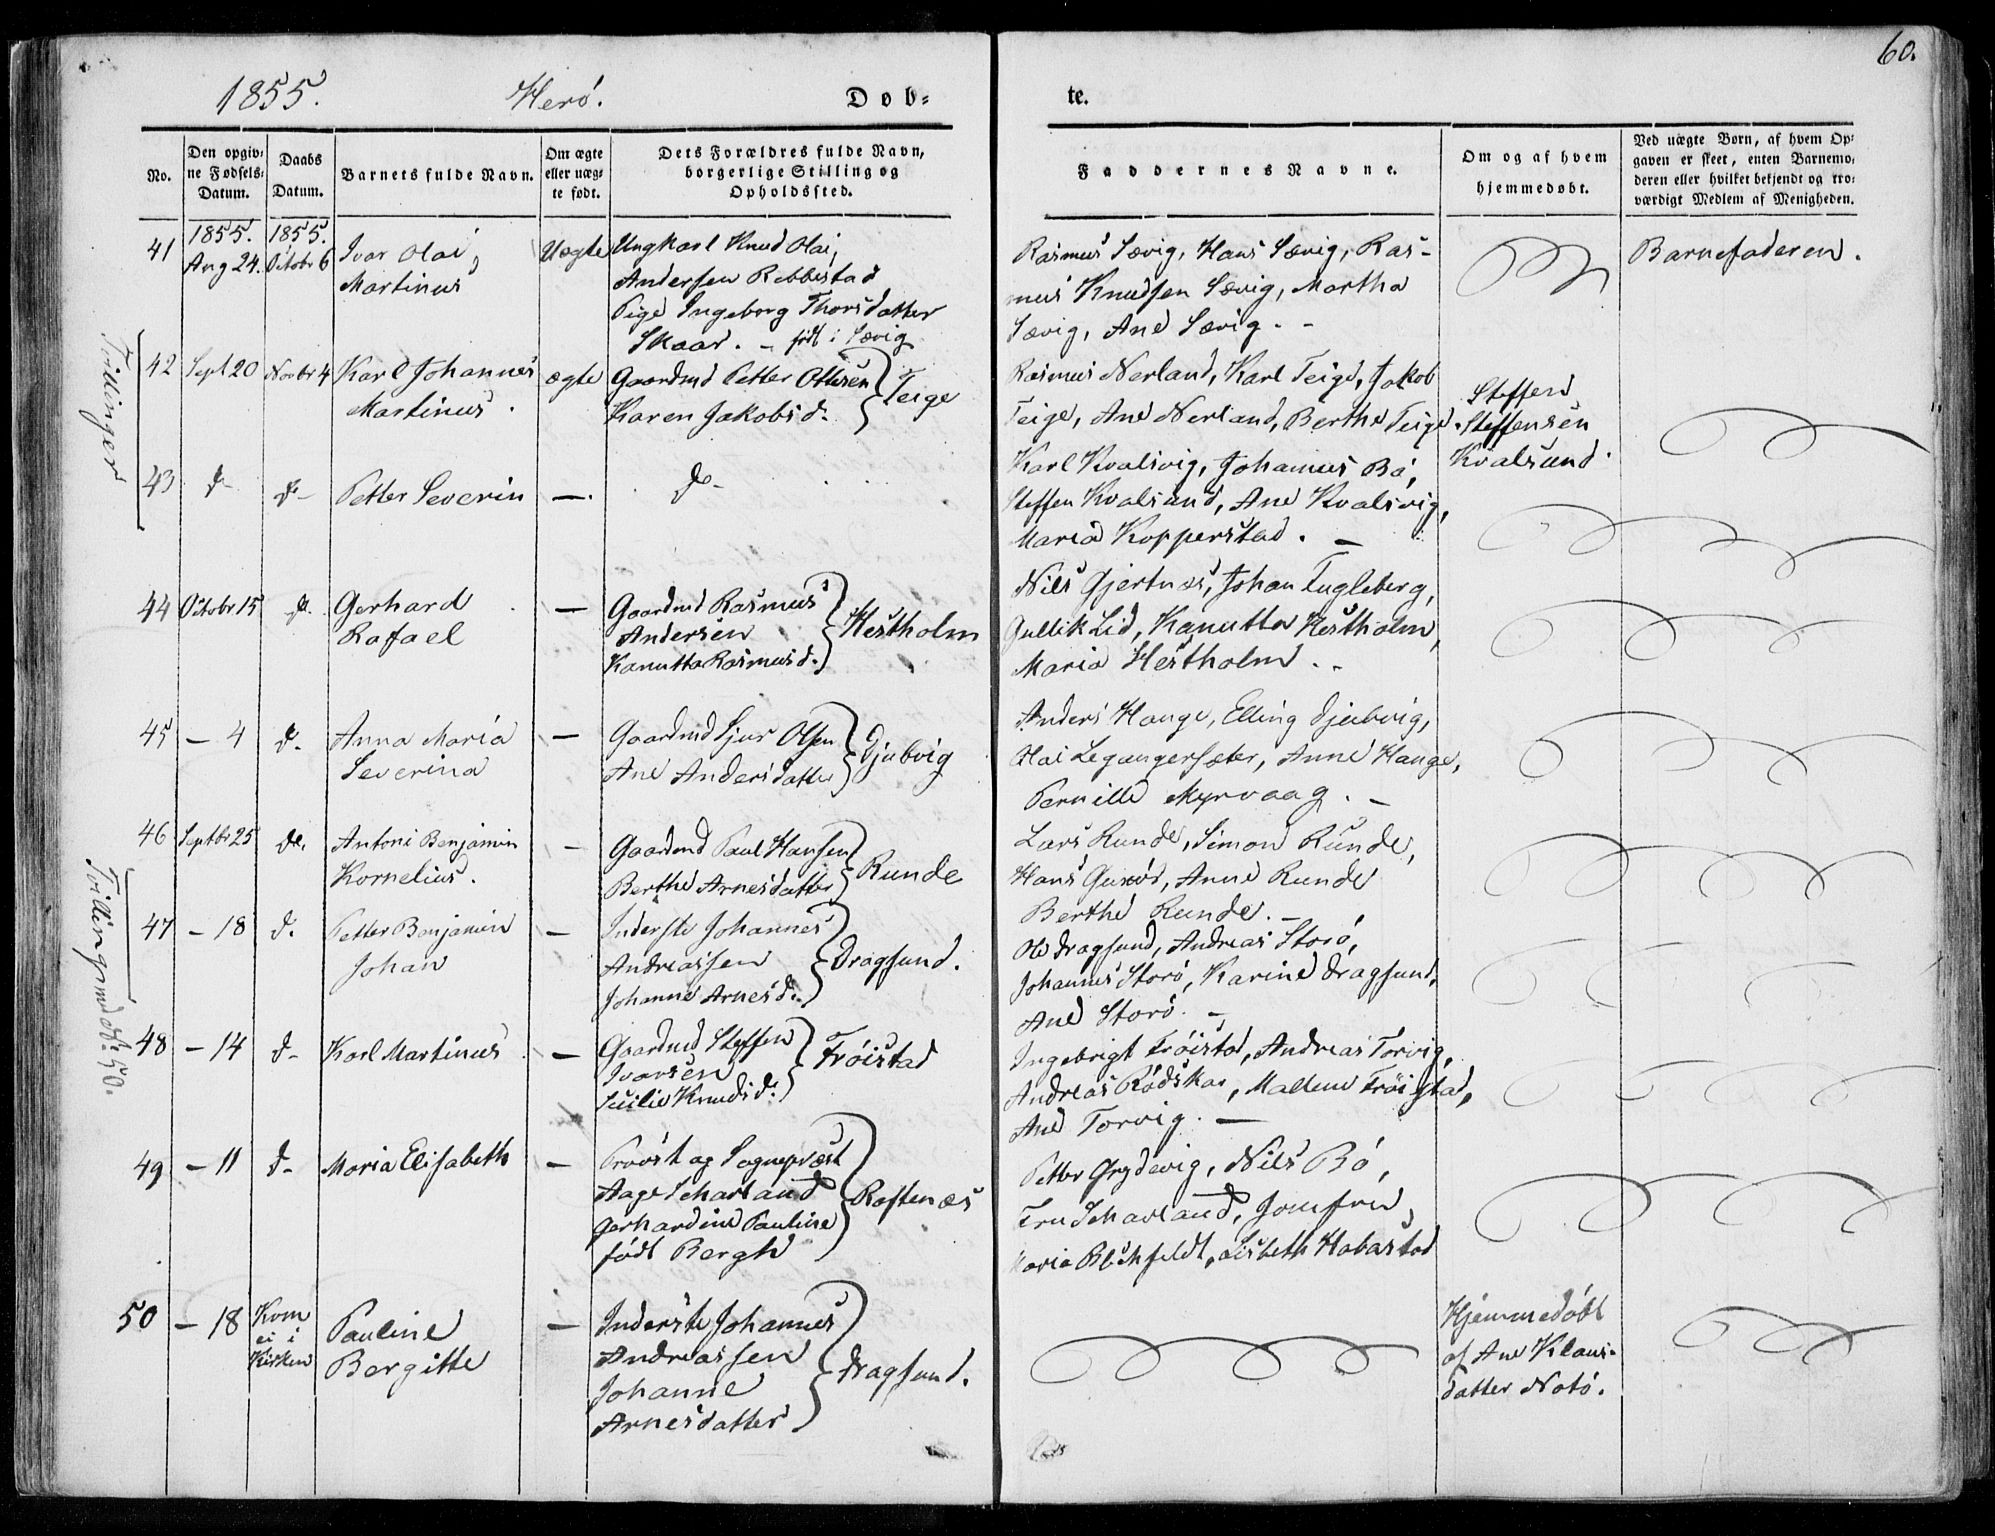 60.
1855. Herö. Døb= te.
No.
Den opgiv=
ne Fødsels=
Datum.
Daabs
Datum.
Barnets fulde Navn.
Om ægte
eller uæg=
te født.
Dets Forældres fulde Navn,
borgerlige Stilling og
Opholdssted.
Faddernes Navne.
Om og af hvem
hjemmedøbt.
Ved uægte Børn, af hvem Op=
gaven er skeet, enten Barnemo=
deren eller hvilket bekjendt og tro=
værdigt Medlem af Menigheden.
41
1855.
Aug 24.
1855.
Octobr 6
Ivar Olai
Martinus
Uægte
Ungkarl Knud Olai
Andersen Rebbestad
Pige Ingeborg Thorsdatter
Skaar. - født i Sævig
Rasmus Sævig, Hans Sævig, Ras-
mus Knudsen Sævig, Martha
Sævig, Ane Sævig. -
Barnefaderen.
Tvillinger
42
Sept 20
Novbr 4
Karl Johannes
Martinus.
ægte
Gaardmd Petter Ottesen
Karen Jakobsd.
Teige
Rasmus Nerland, Karl Teige, Jakob
Teige, Ane Nerland, Berthe Teige.
Steffen
Steffensen
Kvalsund.
43
d-
d-
Petter Severin
-
do-
Karl Kvalsvig, Johannes Bö,
Steffen Kvalsund, Ane Kvalsvig,
Maria Kopperstad. -
44
Octobr 15
d.
Gerhard
Rafael
-
Gaardmd Rasmus
Andersen
Kanutta Rasmusd.
Hestholm
Nils Gjertnæs, Johan Fugleberg,
Gullik Lid, Kanutta Hestholm,
Maria Hestholm. -
45
- 4
d.
Anna Maria
Severina
-
Gaardmd Sjur Olsen
Ane Andersdatter
Djubvig
Anders Hauge, Elling Djubvig,
Olai Legangersæter, Anne Hauge,
Pernille Myrvaag. -
46
Septbr 25
do.
Antoni Benjamin
Kornelius.
-
Gaardmd Paul Hansen
Berthe Arnesdatter
Runde
Lars Runde, Simon Runde,
Hans Gurød, Anne Runde
Berthe Runde. -
Tvillinger md. No. 50.
47
- 18
d.
Petter Benjamin
Johan
-
Inderste Johannes
Andreassen
Johanne Arnesd.
Dragsund.
Ole Dragsund, Andreas Storö,
Johannes Storö, Karine Dragsund,
Ane Storö. -
48
- 14
d-
Karl Martinus
-
Gaardmd Steffen
Ivarsen
Secilie Knudsd.
Fröistad
Ingebrigt Fröistad, Andreas Torvig,
Andreas Rödskar, Mallene Fröistad,
Ane Torvig. -
49
- 11
d-
Maria Elisabeth
-
Provst og Sognepræst
Aage Scharland
Gerhardine Pauline
født Bergh
Roftenæs
Petter Grydevig, Nils Bö,
Fru Scharland, Jomfru
Maria Blichfeldt, Lisbeth Habastad
50
- 18
Kom
ei i
Kirken
Pauline
Bergitte
-
Inderste Johannes
Andreassen
Johanne
Arnesdatter
Dragsund.
Hjemmedöbt
af Ane Klaus-
datter Notö.